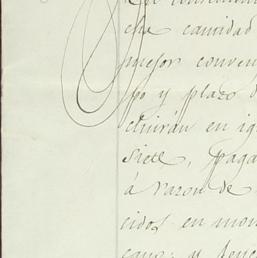 cha cantidad
mejor conven
po y plazo d
cluirán en ig
siete, paga
á razon de
cidos en mon
cano; y